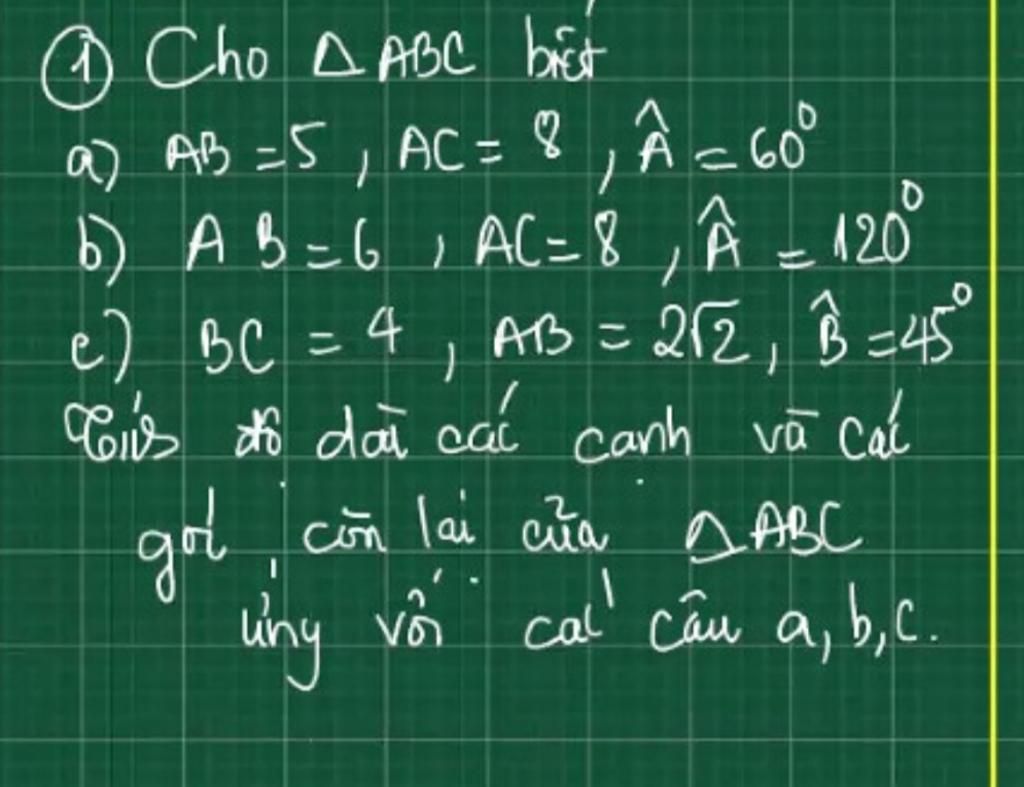 ① Cho △ABC biết
a) AB = 5, AC = 8, Â = 60°
b) AB = 6, AC = 8, Â = 120°
c) BC = 4, AB = 2√2, B̂ = 45°
Tính độ dài các cạnh và các
góc còn lại của △ABC
ứng với các câu a, b, c.